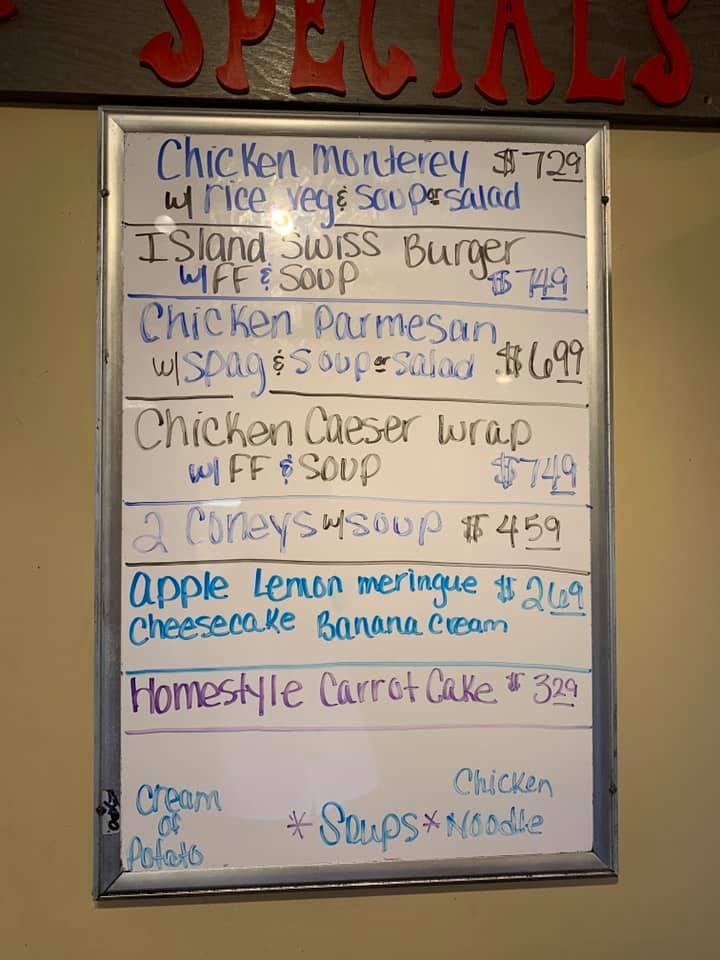 SPECIALS
Chicken Monterey $7.29
w/ rice veg & Soup or Salad
Island Swiss Burger
w/ FF & Soup $7.49
Chicken Parmesan
w/ spag & Soup or Salad $6.99
Chicken Caeser Wrap
w/ FF & Soup $7.49
2 Coneys w/ soup $4.59
apple Lemon meringue $2.69
Cheesecake Banana Cream
Homestyle Carrot Cake $3.29
Cream
of
Potato
* Soups *
Chicken
Noodle